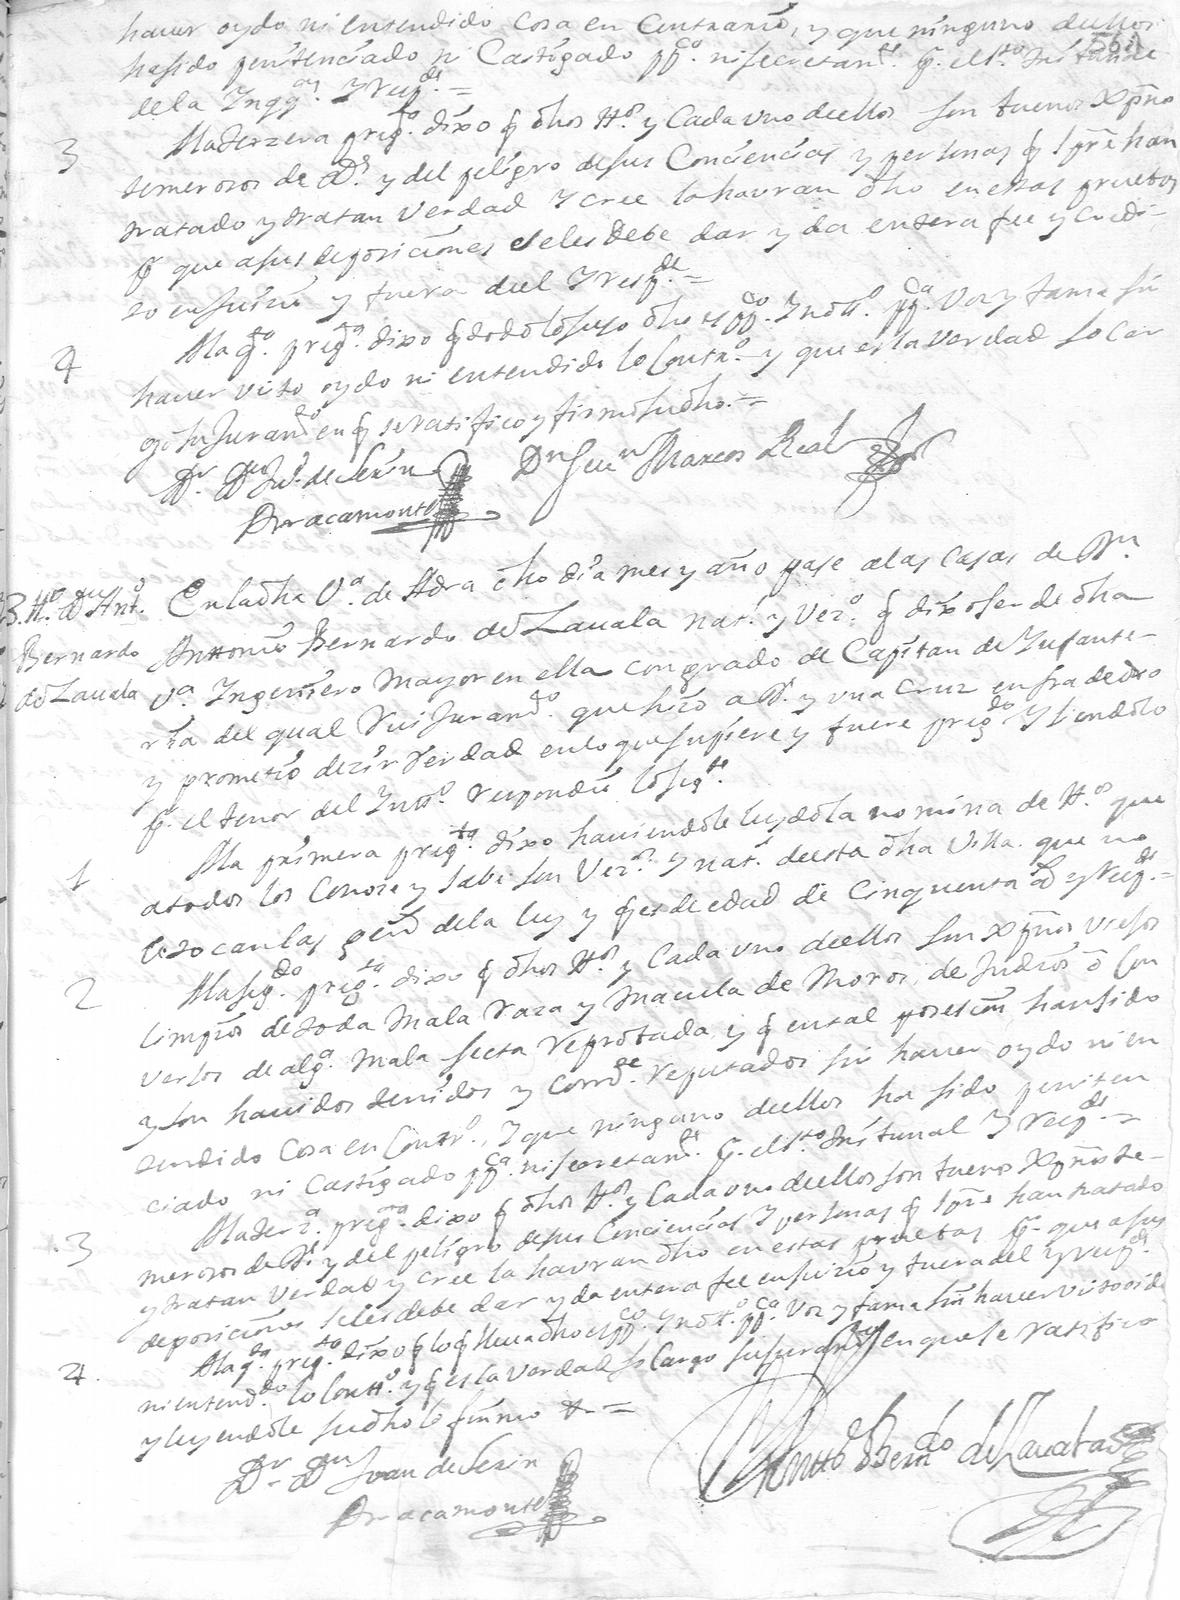 haver oydo ni entendido cosa en Contrario, y que ninguno dellos
ha sido penitenciado ni Castigado pp.co ni secretam.te p.r el s.to Tribunal
de la Inqq.on Y resp.de =
3 A la terzera preg.ta dixo q dhos tt.os y Cada uno dellos son buenos Xpnos
temerosos de D.s y del peligro de sus Conciencias y personas q siempre han
tratado y tratan Verdad Y cree la havran dho en estas pruebas
p.r que a sus deposiciones se les debe dar y da entera fee y credi-
to en Juicio y fuera del Y resp.de =
4 A la q.ta preg.ta dixo q todo lo suso dho es pp.co Y nott.o pp.ca Voz y fama sin
haver visto oydo ni entendido lo Contr.o y que es la verdad so car
go su Juram.to en q se ratifico y firmo su dho =
D.r D.n Ju.o de Serin
Bracamonte
D.n Juu.n Marcos Real
3. tt.o D.n Ant.o
Bernardo
de Zavala
En la dha V.a de Adra dho dia mes y año pase a las casas de D.n
Anttonio Bernardo de Zavala nat.l y Vez.o q dixo ser de dha
V.a Ingeniero mayor en ella con grado de Capitan de Infante-
ria del qual recivi Juram.to que hizo a D.s y una Cruz en fra de dro
y prometio dezir verdad en lo que supiere y fuere preg.do Y siendolo
p.r el tenor del Intt.o respondio lo sig.te
1 A la primera preg.ta dixo haviendole leydo la nomina de tt.os que
a todos los Conoze y save son Vez.os Y nat.s de esta dha Villa que no
le tocan las gen.s de la ley y q es de edad de Cinquenta a.s y resp.de =
2 A la seg.da preg.ta dixo q dhos tt.os y Cada uno dellos son Xpnos viejos
limpios de toda mala raza y macula de Moros, de Judios o Con
versos de alg.a mala secta reprobada, y q en tal posesion han sido
y son havidos tenidos y com.te reputados sin haver oydo ni en
tendido Cosa en Contr.o, Y que ninguno dellos ha sido peniten
ciado ni Castigado pp.ca ni secretam.te p.r el s.to Tribunal Y resp.de =
3 A la terz.a preg.ta dixo q dhos tt.os y Cada uno dellos son buenos Xpnos te-
merosos de D.s y del peligro de sus Conciencias Y personas q siempre han tratado
y tratan Verdad y cree la havran dho en estas pruebas p.r que a sus
deposiciones se les debe dar y da entera fee en juicio y fuera del y resp.de
4 A la q.ta preg.ta dixo q lo q lleva dho es pp.co Y nott.o pp.ca Voz y fama sin haver visto oido
ni entend.do lo Contr.o y q es la Verdad so Cargo su Juram.to en que se ratifico
y leyendole su dho lo firmo =
D.r D.n Juan de Serin
Bracamonte
Antt.o Bern.do de Zavala